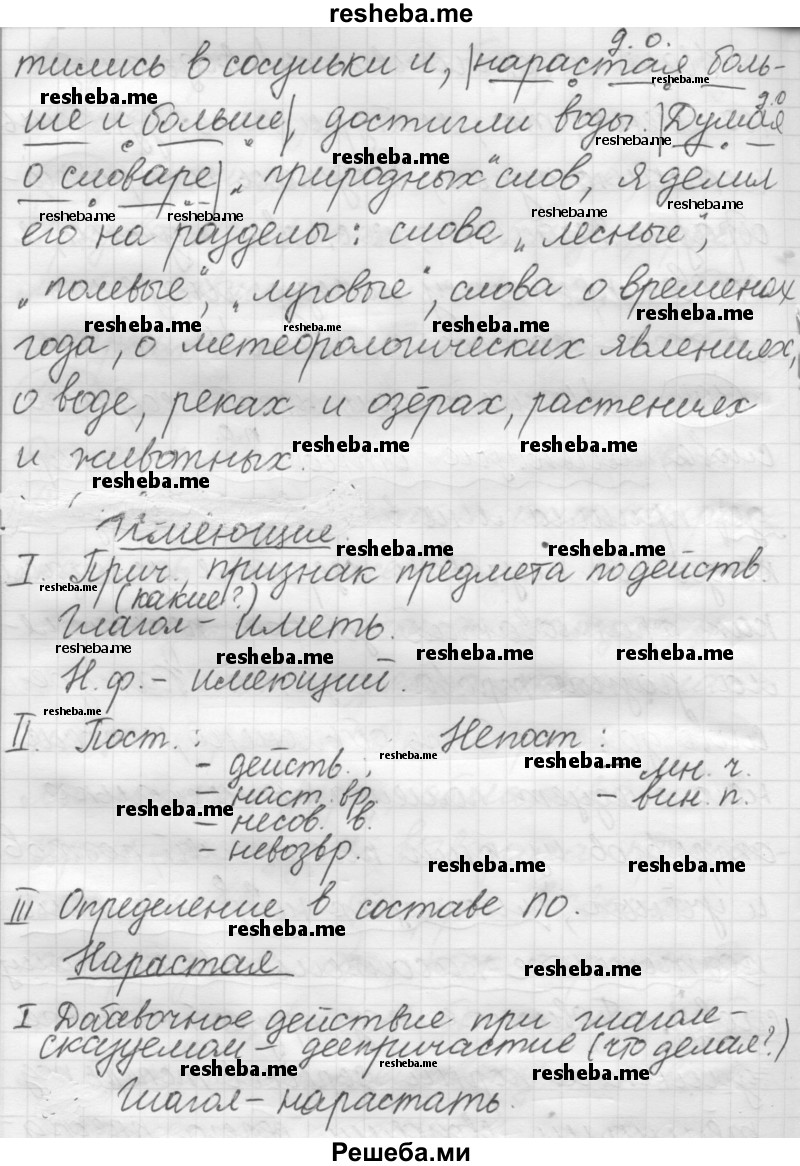 resheba.me
д. о.
тились в сосульки и, |нарастая боль-
resheba.me resheba.me
ше и больше|, достигли воды. |Думая
д.о
resheba.me resheba.me
о словаре| „природных" слов, я делил
resheba.me resheba.me resheba.me resheba.me
его на разделы: слова „лесные",
„полевые", „луговые", слова о временах
resheba.me resheba.me resheba.me resheba.me
года, о метеорологических явлениях,
о воде, реках и озёрах, растениях
resheba.me resheba.me
и животных.
resheba.me
Имеющие.
resheba.me resheba.me
I. Прич., признак предмета по действ.
resheba.me
(какие?)
Глагол - иметь.
resheba.me resheba.me resheba.me resheba.me
Н.ф. - имеющий.
resheba.me
II. Пост.: Непост:
resheba.me resheba.me
- действ., - мн. ч.
- наст. вр. - вин. п.
resheba.me
- несов. в.
- невозвр.
resheba.me resheba.me
III Определение в составе ПО.
resheba.me
Нарастая
resheba.me
I Добавочное действие при глаголе-
сказуемом - деепричастие (что делая?)
resheba.me resheba.me resheba.me
Глагол - нарастать.
Решеба.ми